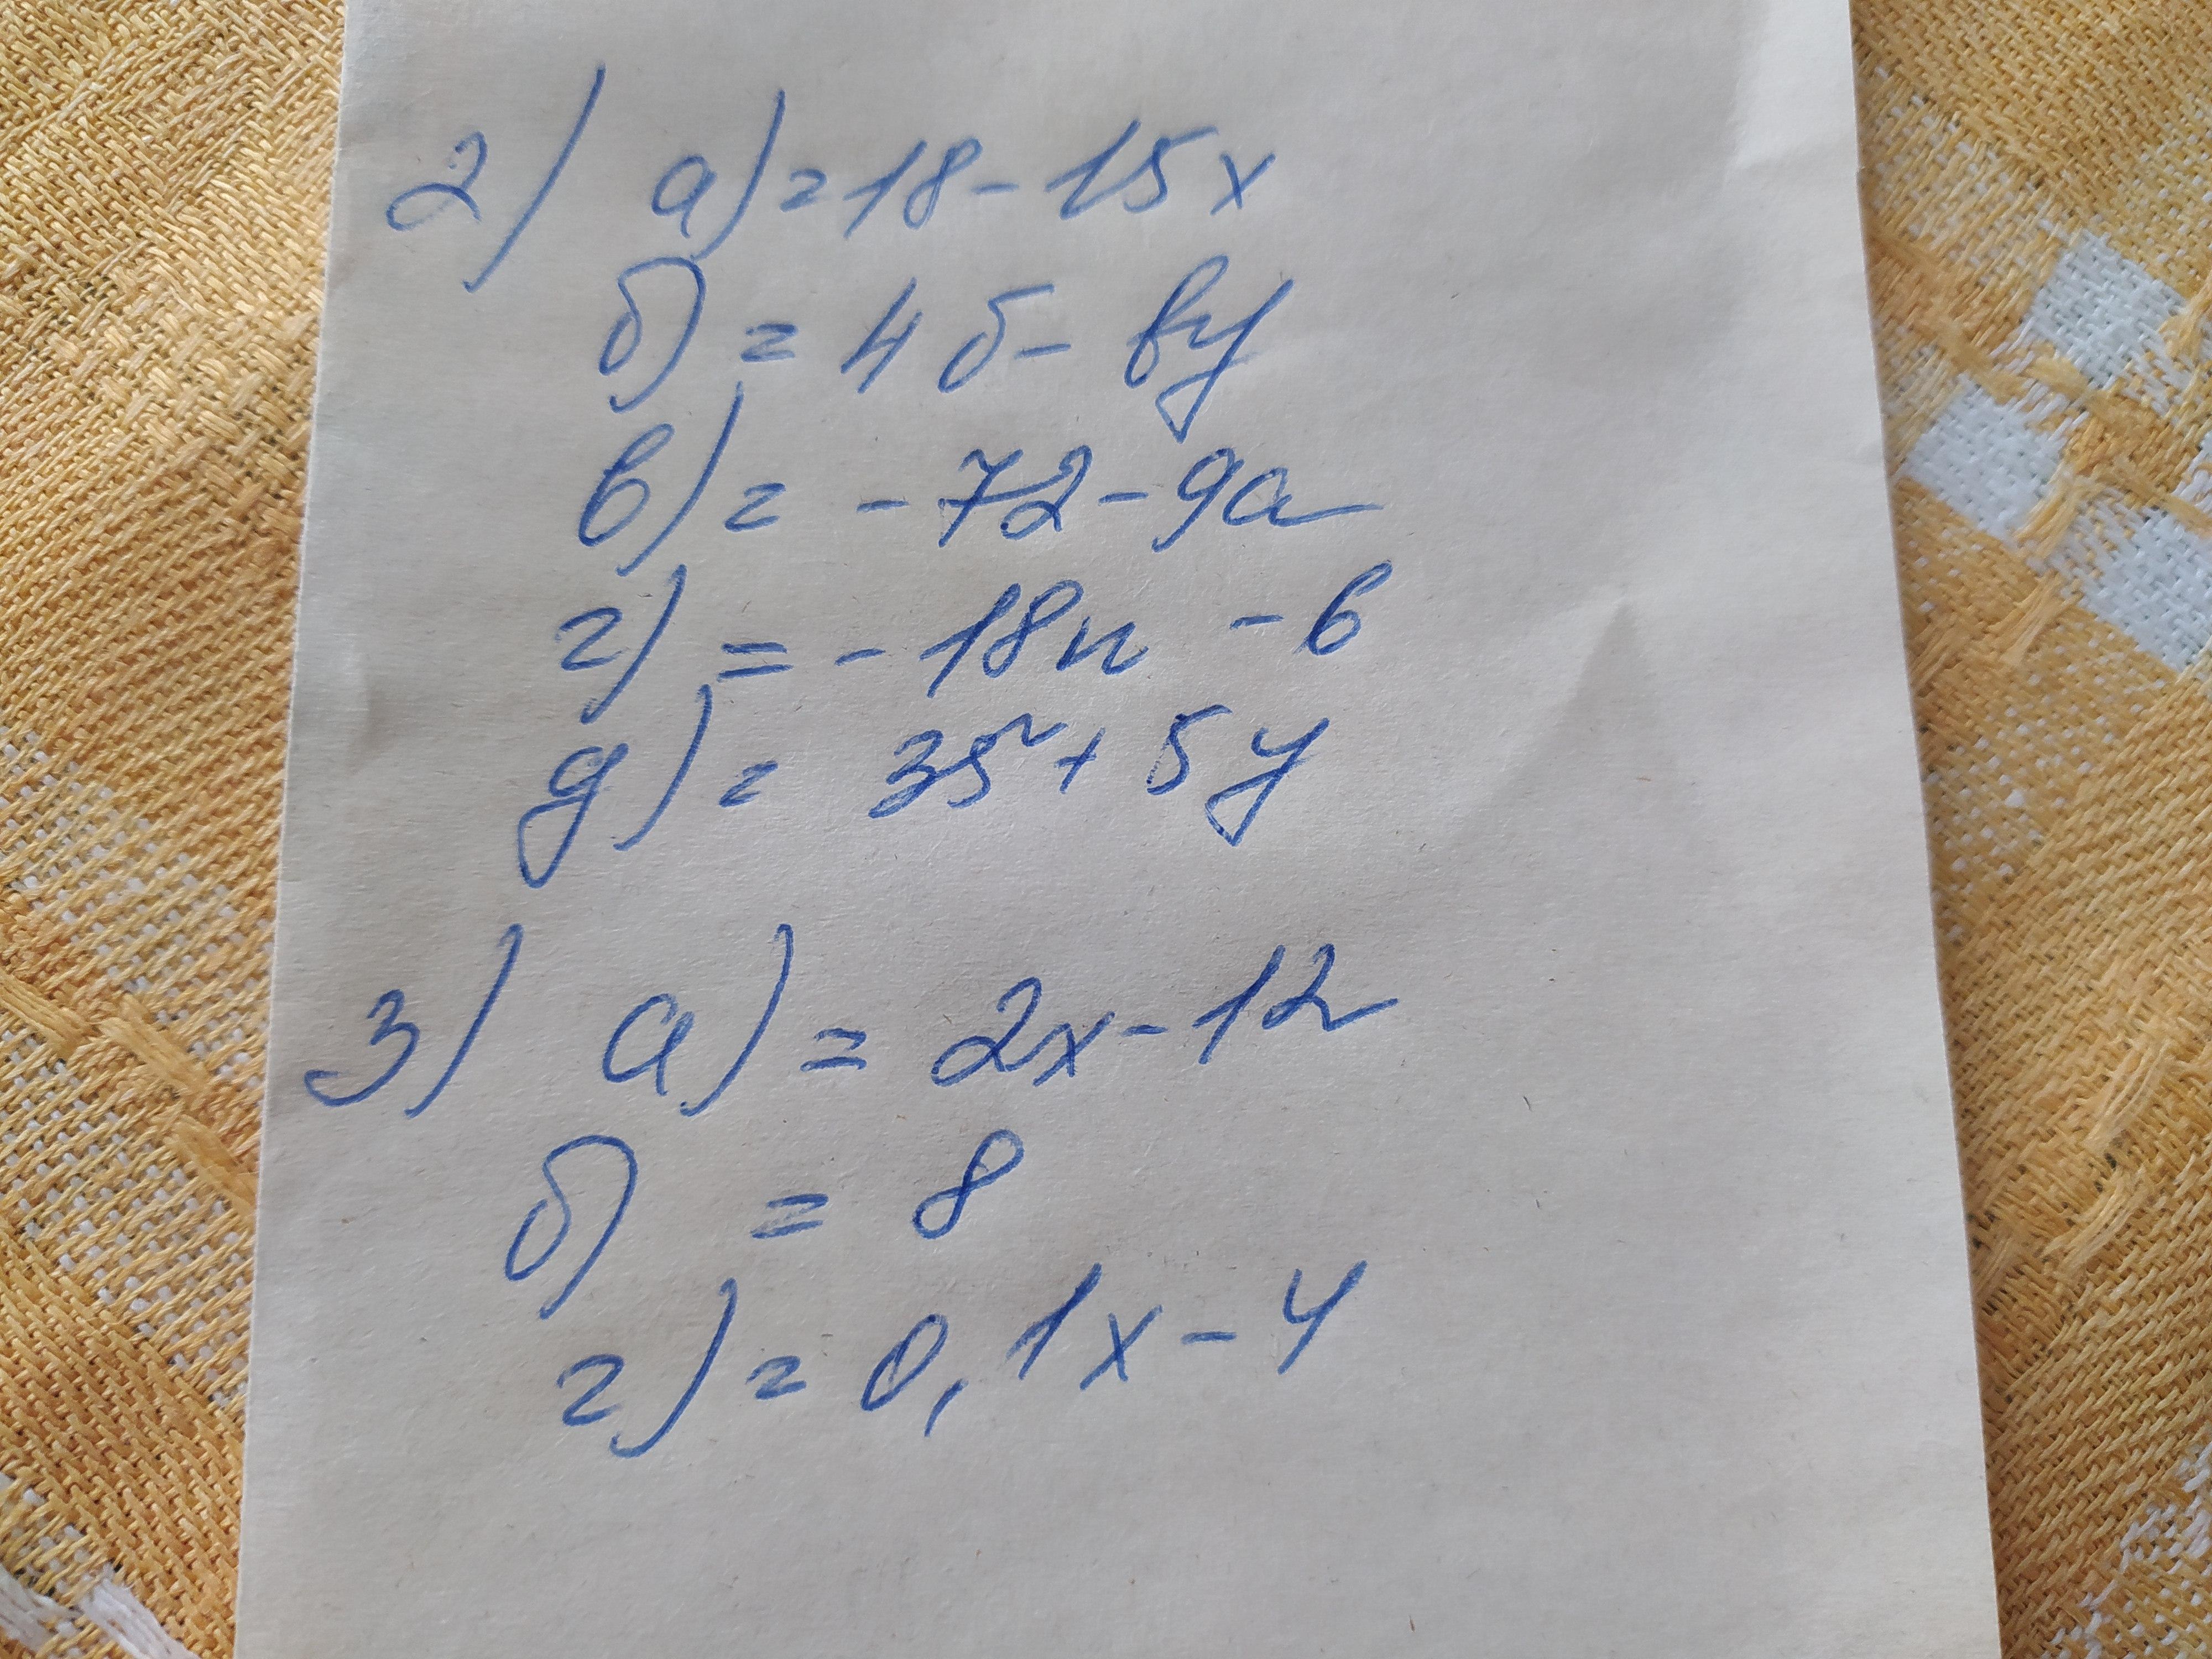 2) а) = 18 - 15x
б) = 45 - 6y
в) = - 72 - 9a
г) = - 18n - 6
д) = 35 + 5y
3) а) = 2x - 12
б) = 8
г) = 0,1x - 4